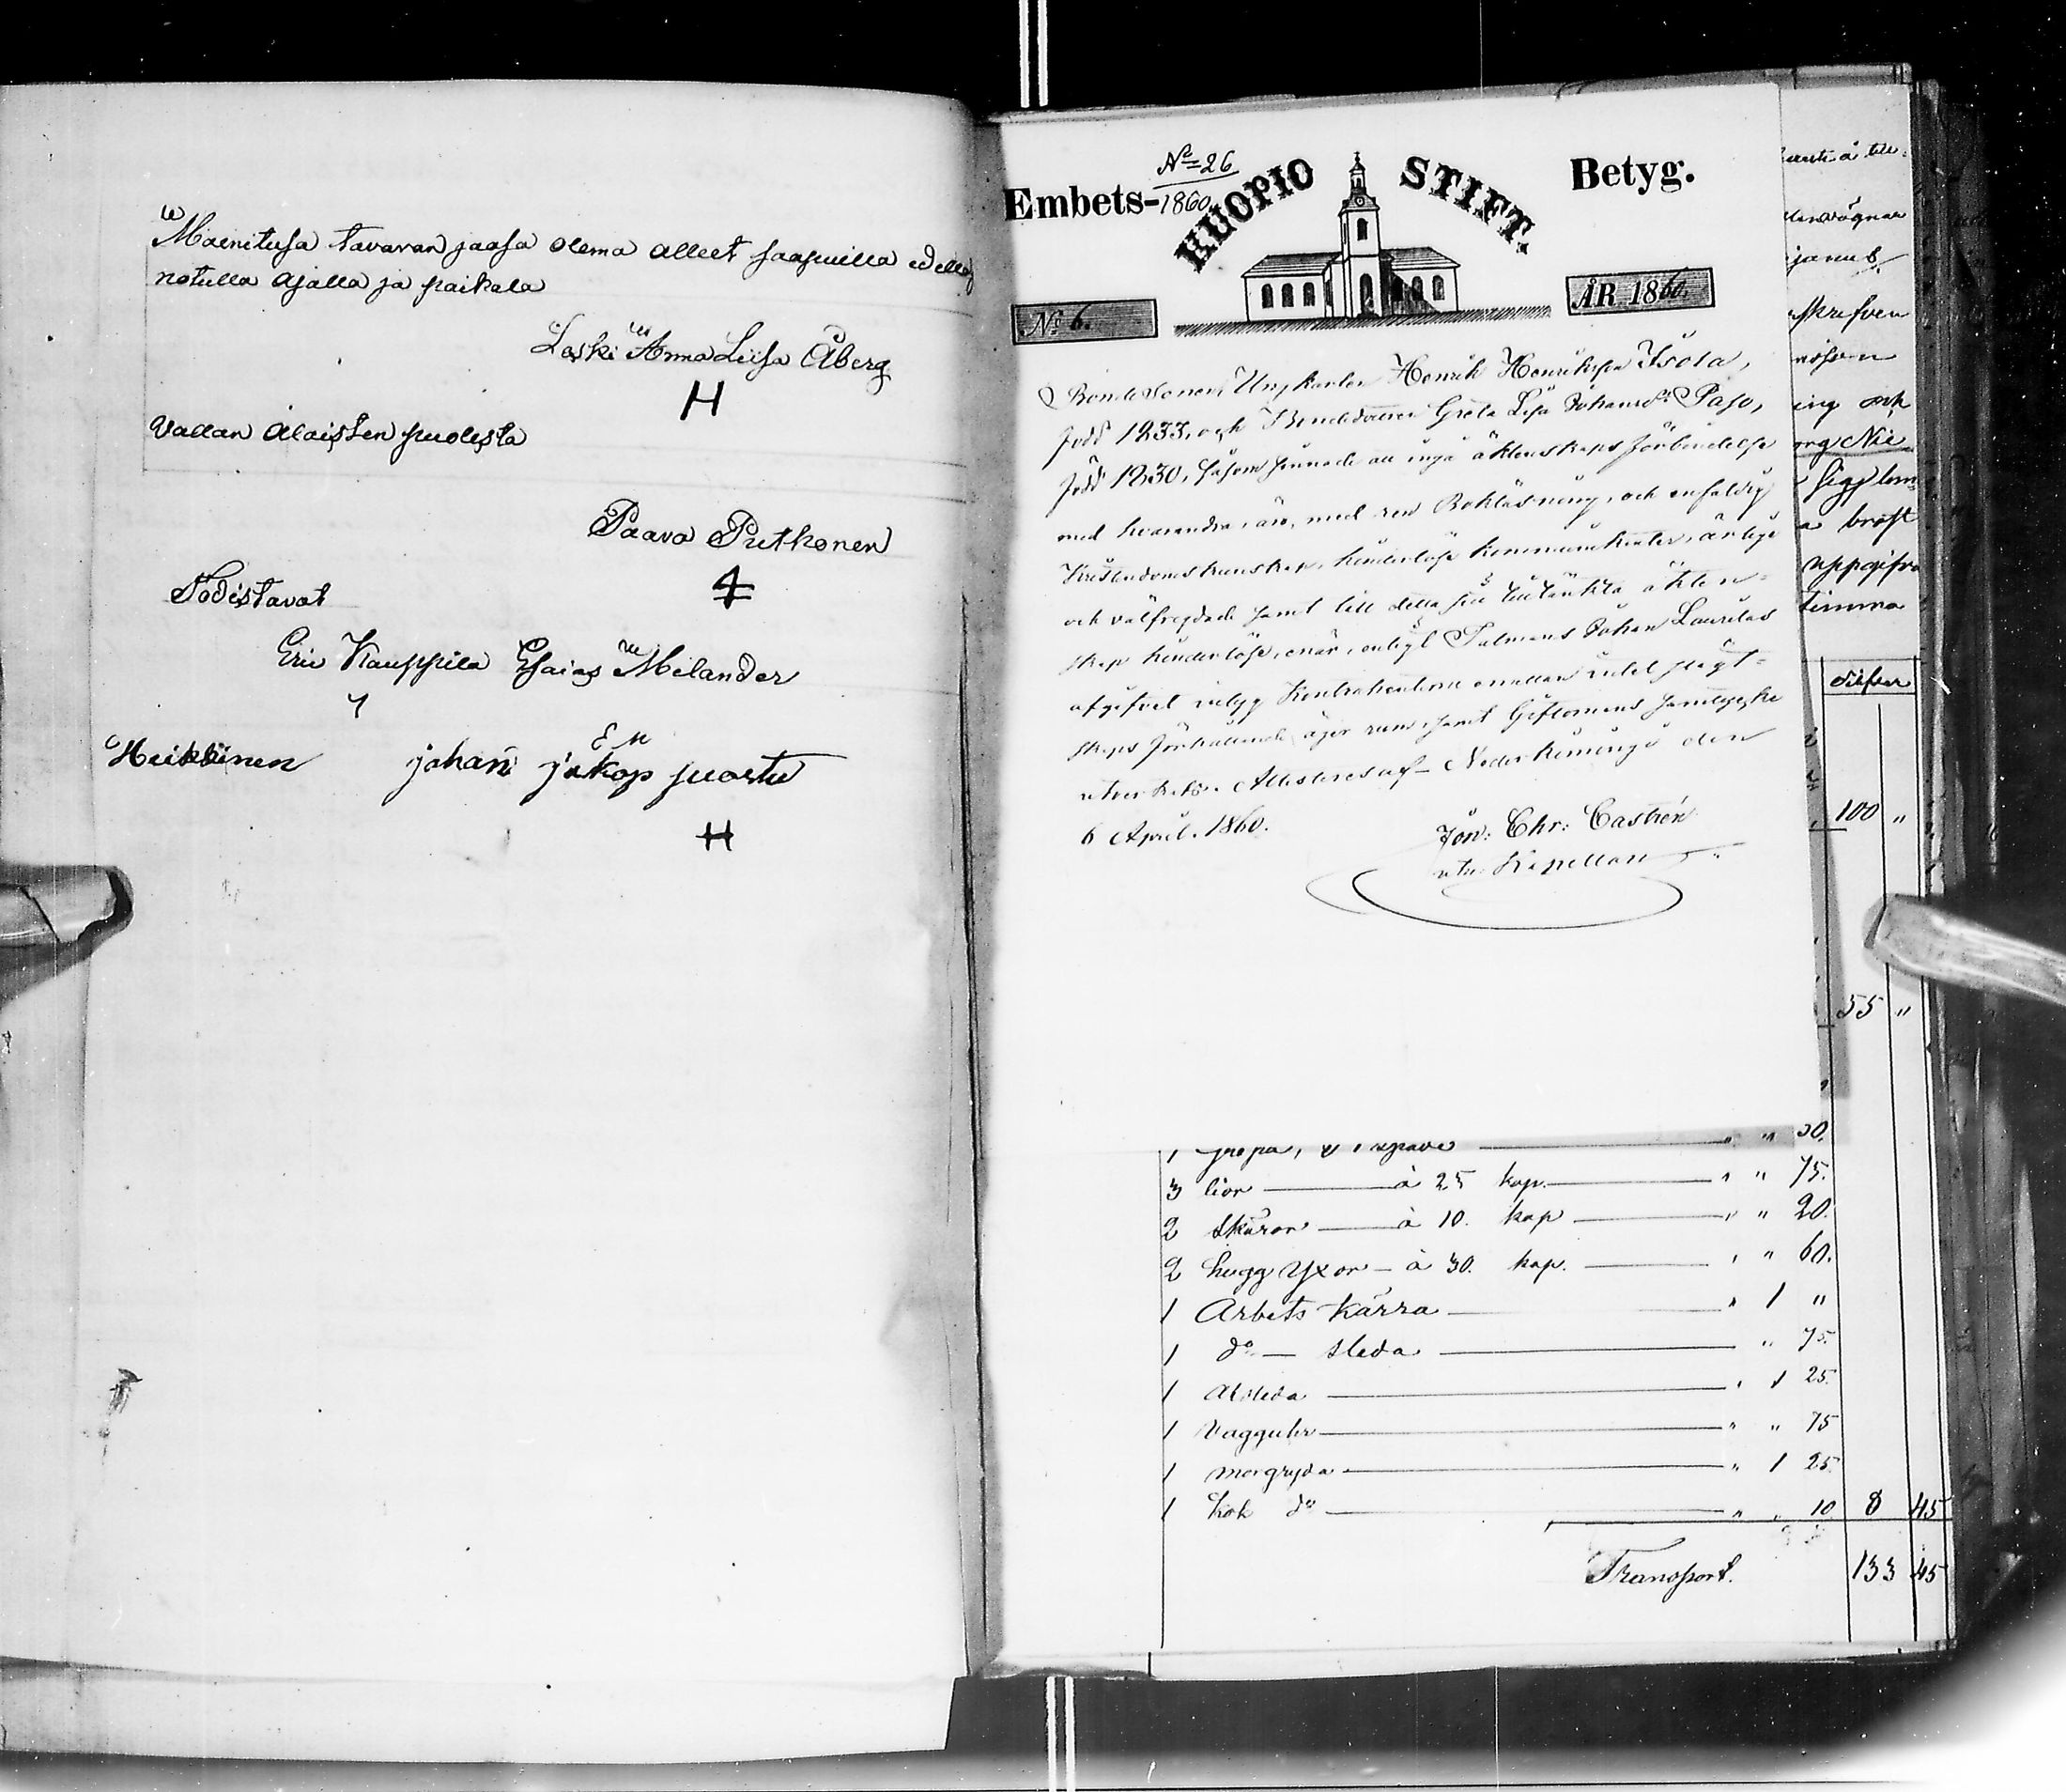 Mainitusa tavaran jaosa olema olleet saapuilla edellä
notulla ajalla ja paikala
Leski Anna Liisa Åberg
H
Vallan alaisten puolesta
Paava Putkonen
Todistavat
Eric Kauppila Esaias Melander
Heikkinen johan jakop juortu
H
No 26
1860.
Embets-Betyg.
HUOPIO STIFT.
No 6.
ÅR 1860.
Bondesonen, Ungkarlen Henrik Henriksson Isola,
född 1833, och Bondedottren Greta Lisa Johansdr Paso,
född 1830, såsom sinnade att ingå äktenskaps förbindelse
med hvarandra, äro, med ren Bokläsning, och enfaldig
Kristendomskunskap, hinderlöse kommunikanter, ärlige
och välfrejdade samt till detta sitt tilltänkta äkten-
skap hinderlöse, enär, enligt Talmans Johan Laurilas
afgifvet intyg Kontrahenterna emellan intet slägt-
skaps förhållande äger rum, samt Giftomans samtycke
utverkats. Attesteras af Nederkiminge den
6 April. 1860.
Jon: Chr: Castrén
Kapellan
till
skrefven
ing och
uppgifva
timma
Silfver
100 "
55 "
50.
3 liar à 25 kop. " " 75.
2 Skäror à 10. kop " " 20.
2 hugg yxor à 30. kop. " " 60.
1 Arbets kärra " 1 "
1 do sleda " 75.
1 Åksleda " 1 25.
1 Vägguhr " " 75
1 morgryda " 1 25.
1 kok do " " 10 8 45
Transport. 133 45